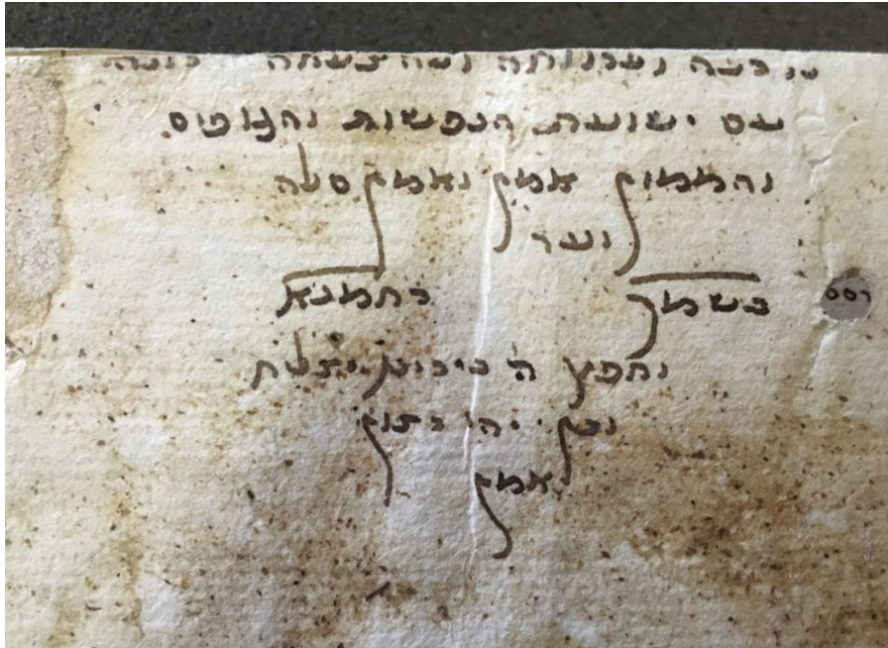 עם ישועת הנפשות והגופים
והממון אמן ואמן סלה
ועד
בשמך רחמנא
וחפץ ה בידו יצלח
וכן יהי רצון
אמן